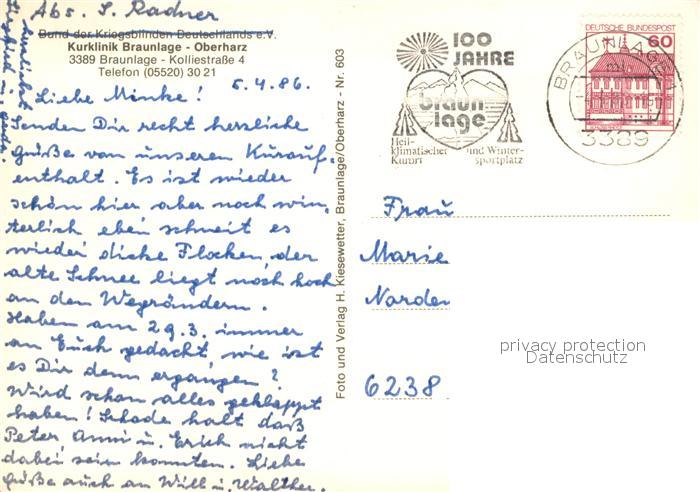 Abs. S. Radner
Bund der Kriegsblinden Deutschlands e.V.
Kurklinik Braunlage - Oberharz
3389 Braunlage - Kolliestraße 4
Telefon (05520) 30 21
5.4.86.
Liebe Minke!
Senden Dir recht herzliche
Grüße von unseren Kurauf-
enthalt. Es ist wieder
schön hier aber noch win-
terlich eben schneit es
wieder dicke Flocken, der
alte Schnee liegt noch hoch
an den Wegrändern.
Haben am 29.3. immer
an Euch gedacht wie ist
es Dir denn ergangen?
Wird schon alles geklappt
haben! Schade halt daß
Peter, Anni u. Erich nicht
dabei sein konnten. Liebe
Grüße auch an Willi u. Walther.
Foto und Verlag H. Kiesewetter, Braunlage/Oberharz - Nr. 603
100
JAHRE
braun
lage
Heil-
klimatischer und Winter-
Kurort sportplatz
DEUTSCHE BUNDESPOST
60
BRAUNLAGE
3389
Frau
Marie
Narden
6238
privacy protection
Datenschutz